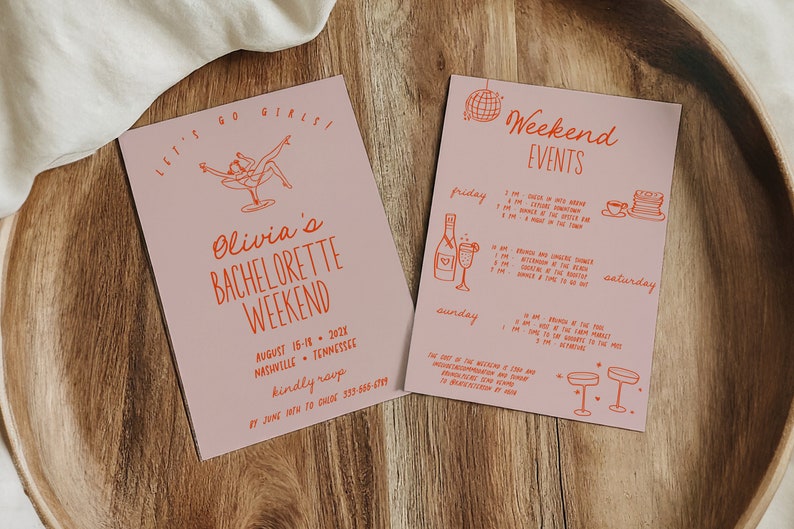 LET'S GO GIRLS!
Olivia's
BACHELORETTE
WEEKEND
AUGUST 15-18 • 202X
NASHVILLE • TENNESSEE
kindly rsvp
BY JUNE 10TH TO CHLOE 333-555-6789
Weekend
EVENTS
friday
2 PM - CHECK IN INTO AIRBNB
4 PM - EXPLORE DOWNTOWN
7 PM - DINNER AT THE OYSTER BAR
8 PM - A NIGHT IN THE TOWN
10 AM - BRUNCH AND LINGERIE SHOWER
1 PM - AFTERNOON AT THE BEACH
5 PM - COCKTAIL AT THE ROOFTOP
9 PM - DINNER & TIME TO GO OUT
saturday
sunday
10 AM - BRUNCH AT THE POOL
11 AM - VISIT AT THE FARM MARKET
1 PM - TIME TO SAY GOODBYE TO THE MISS
3 PM - DEPARTURE
THE COST OF THE WEEKEND IS £350 AND
INCLUDES ACCOMMODATION AND SUNDAY
BRUNCH.PLEASE SEND VENMO
TO @KATIEPETERSON BY